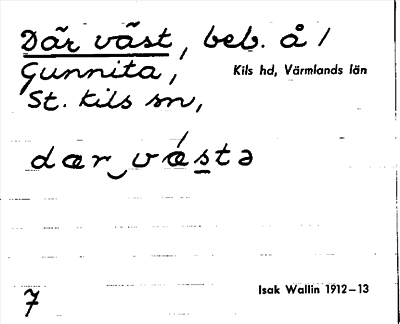 Där väst, beb. å /
Gunnita,
Kils hd, Värmlands län
St. Kils sn,
dær‿vǽs̲tə
Isak Wallin 1912–13
7